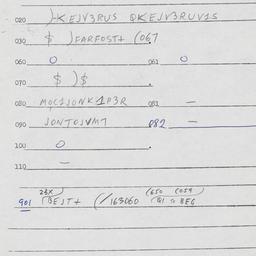 020 )-KEJV3RUS QKEJV3RUV1S
030 $ )FARFOST+ (067
060 0 061 0
070 $ )$
080 MOC1JONK1P3R 081 -
090 JONTOJVM7 092 -
100 0
110 -
901 BEJT+ (/163060